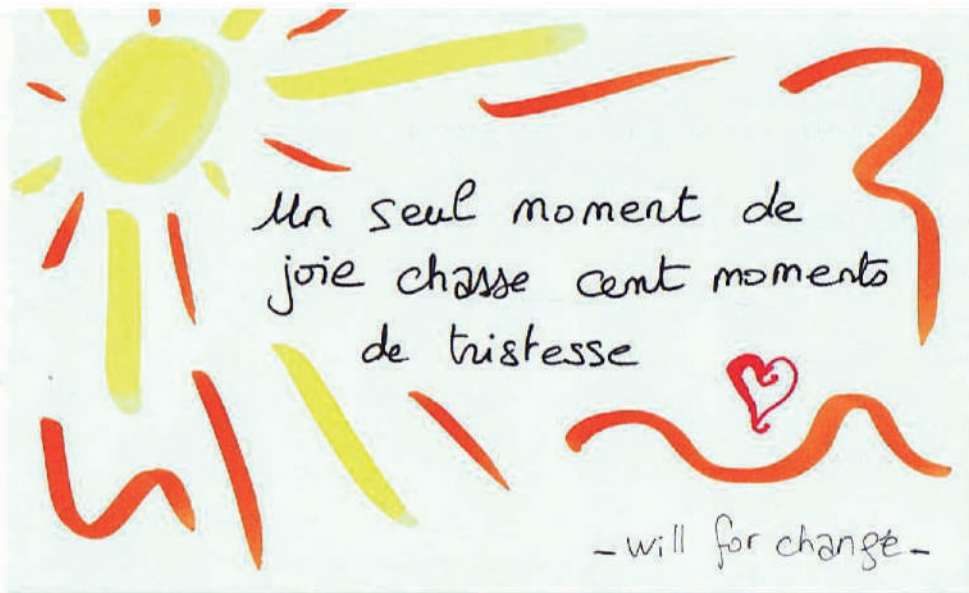 Un seul moment de
joie chasse cent moments
de tristesse
- will for change -